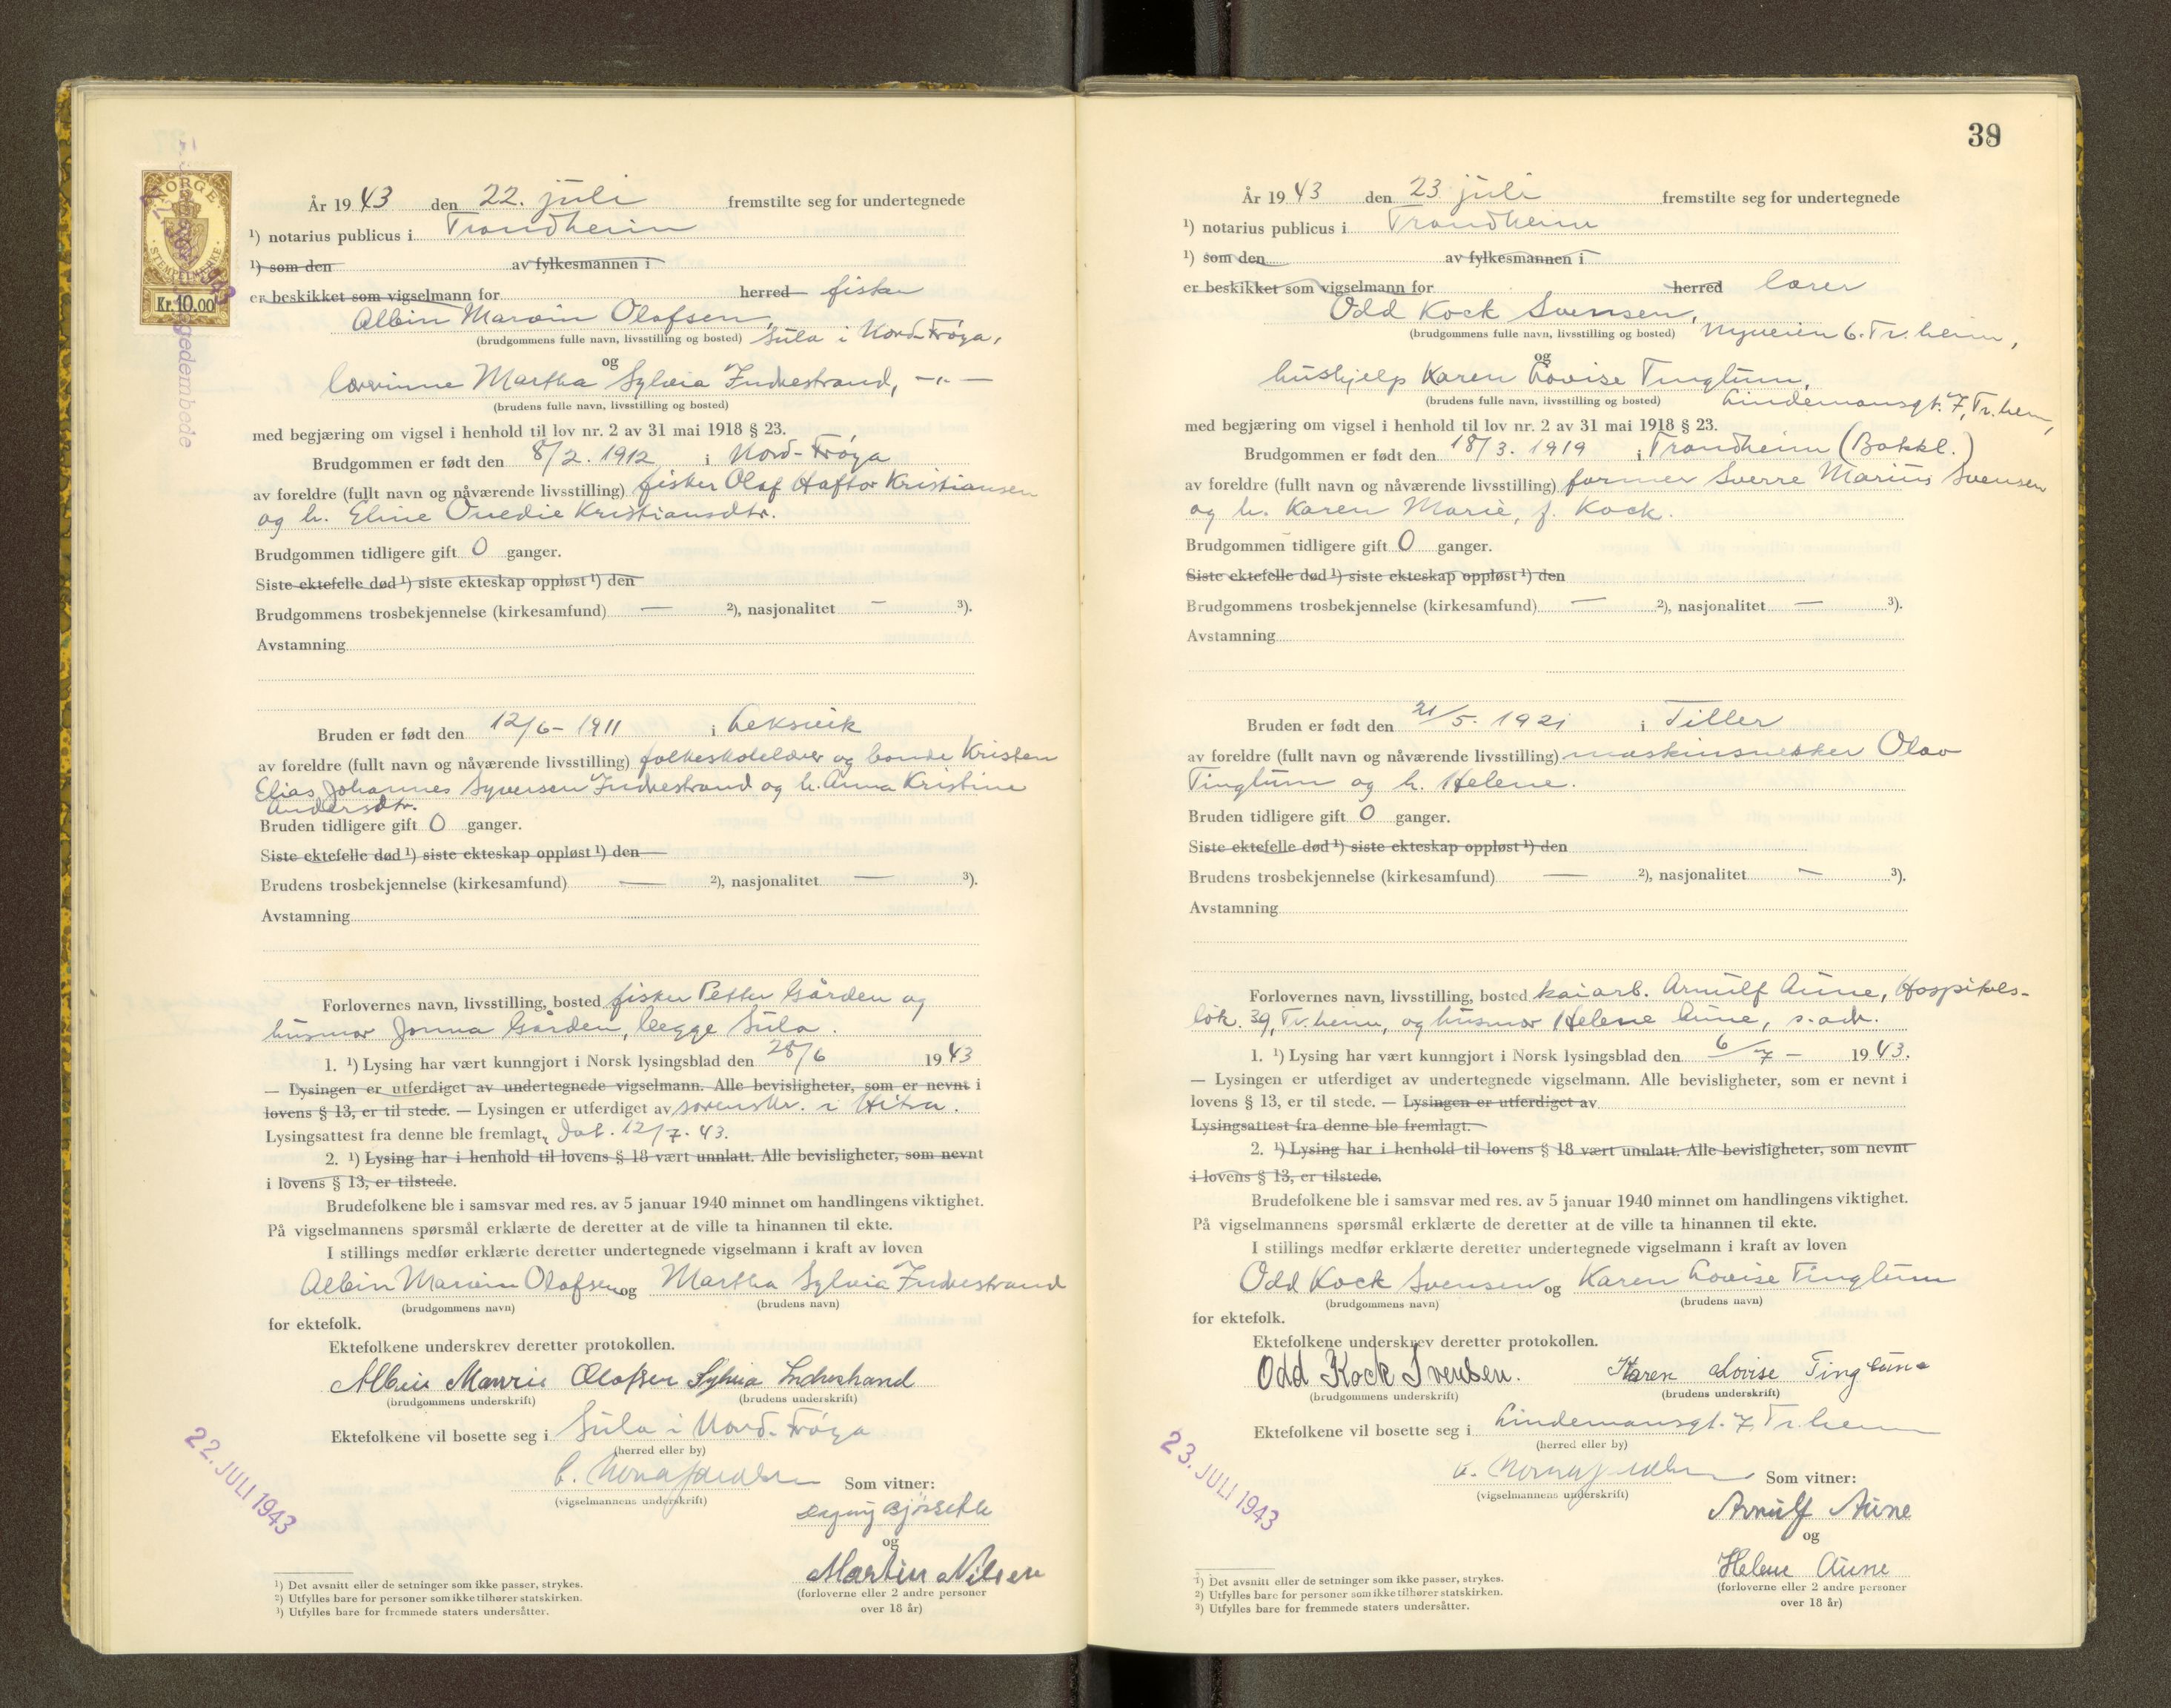 NORGE
STEMPELMERKE
Kr. 10.00
År 19 43 den 22. juli fremstilte seg for undertegnede
¹) notarius publicus i Trondheim
¹) som den av fylkesmannen i
er beskikket som vigselmann for herred fisker
Albin Marvin Olafsen,
(brudgommens fulle navn, livsstilling og bosted) Sula i Nord-Frøya,
og
lærerinne Martha Sylvia Indrestrand, —"—
(brudens fulle navn, livsstilling og bosted)
med begjæring om vigsel i henhold til lov nr. 2 av 31 mai 1918 § 23.
Brudgommen er født den 8/2. 1912 i Nord-Frøya
av foreldre (fullt navn og nåværende livsstilling) fisker Olaf Haftor Kristiansen
og h. Eline Ovedie Kristiansdtr.
Brudgommen tidligere gift 0 ganger.
Siste ektefelle død ¹) siste ekteskap oppløst ¹) den
Brudgommens trosbekjennelse (kirkesamfund) — ²), nasjonalitet — ³).
Avstamning
Bruden er født den 12/6- 1911 i Leksvik
av foreldre (fullt navn og nåværende livsstilling) folkeskolelærer og bonde Kristen
Elias Johannes Syversen Indrestrand og h. Anna Kristine
Andersdtr.
Bruden tidligere gift 0 ganger.
Siste ektefelle død ¹) siste ekteskap oppløst ¹) den
Brudens trosbekjennelse (kirkesamfund) — ²), nasjonalitet — ³).
Avstamning
Forlovernes navn, livsstilling, bosted fisker Petter Gården og
husmor Jonna Gården, begge Sula.
1. ¹) Lysing har vært kunngjort i Norsk lysingsblad den 28/6 1943
— Lysingen er utferdiget av undertegnede vigselmann. Alle bevisligheter, som er nevnt i
lovens § 13, er til stede. — Lysingen er utferdiget av sorenskr. i Hitra.
Lysingsattest fra denne ble fremlagt, dat. 12/7. 43.
2. ¹) Lysing har i henhold til lovens § 18 vært unnlatt. Alle bevisligheter, som nevnt
i lovens § 13, er tilstede.
Brudefolkene ble i samsvar med res. av 5 januar 1940 minnet om handlingens viktighet.
På vigselmannens spørsmål erklærte de deretter at de ville ta hinannen til ekte.
I stillings medfør erklærte deretter undertegnede vigselmann i kraft av loven
Albin Marvin Olafsen og Martha Sylvia Indrestrand
(brudgommens navn) (brudens navn)
for ektefolk.
Ektefolkene underskrev deretter protokollen.
Albin Marvin Olafsen Sylvia Indrestrand
(brudgommens underskrift) (brudens underskrift)
Ektefolkene vil bosette seg i Sula i Nord-Frøya
(herred eller by)
22. JULI 1943
Som vitner:
(vigselmannens underskrift)
Dagny
og
Martin Nilsen
(forloverne eller 2 andre personer
over 18 år)
¹) Det avsnitt eller de setninger som ikke passer, strykes.
²) Utfylles bare for personer som ikke tilhører statskirken.
³) Utfylles bare for fremmede staters undersåtter.
39
År 19 43 den 23 juli fremstilte seg for undertegnede
¹) notarius publicus i Trondheim
¹) som den av fylkesmannen i
er beskikket som vigselmann for herred lærer
Odd Kock Svensen,
(brudgommens fulle navn, livsstilling og bosted) Nyveien 6. Tr.heim,
og
hushjelp Karen Lovise Tinglum,
(brudens fulle navn, livsstilling og bosted) Lindemansgt. 7, Tr.heim,
med begjæring om vigsel i henhold til lov nr. 2 av 31 mai 1918 § 23.
Brudgommen er født den 18/3. 1919 i Trondheim (Bakkl.)
av foreldre (fullt navn og nåværende livsstilling) former Sverre Marius Svensen
og h. Karen Marie, f. Kock.
Brudgommen tidligere gift 0 ganger.
Siste ektefelle død ¹) siste ekteskap oppløst ¹) den
Brudgommens trosbekjennelse (kirkesamfund) — ²), nasjonalitet — ³).
Avstamning
Bruden er født den 21/5. 1921 i Tiller
av foreldre (fullt navn og nåværende livsstilling) maskinsnekker Olav
Tinglum og h. Helene.
Bruden tidligere gift 0 ganger.
Siste ektefelle død ¹) siste ekteskap oppløst ¹) den
Brudens trosbekjennelse (kirkesamfund) — ²), nasjonalitet — ³).
Avstamning
Forlovernes navn, livsstilling, bosted kaiarb. Arnulf Aune, Hospitals-
løk. 39, Tr.heim, og husmor Helene Aune, s. adr.
1. ¹) Lysing har vært kunngjort i Norsk lysingsblad den 6/7 — 1943.
— Lysingen er utferdiget av undertegnede vigselmann. Alle bevisligheter, som er nevnt i
lovens § 13, er til stede. — Lysingen er utferdiget av
Lysingsattest fra denne ble fremlagt.
2. ¹) Lysing har i henhold til lovens § 18 vært unnlatt. Alle bevisligheter, som nevnt
i lovens § 13, er tilstede.
Brudefolkene ble i samsvar med res. av 5 januar 1940 minnet om handlingens viktighet.
På vigselmannens spørsmål erklærte de deretter at de ville ta hinannen til ekte.
I stillings medfør erklærte deretter undertegnede vigselmann i kraft av loven
Odd Kock Svensen og Karen Lovise Tinglum
(brudgommens navn) (brudens navn)
for ektefolk.
Ektefolkene underskrev deretter protokollen.
Odd Kock Svensen. Karen Lovise Tinglum
(brudgommens underskrift) (brudens underskrift)
Ektefolkene vil bosette seg i Lindemansgt. 7, Tr.heim
(herred eller by)
23. JULI 1943
Som vitner:
(vigselmannens underskrift)
Arnulf Aune
og
Helene Aune
(forloverne eller 2 andre personer
over 18 år)
¹) Det avsnitt eller de setninger som ikke passer, strykes.
²) Utfylles bare for personer som ikke tilhører statskirken.
³) Utfylles bare for fremmede staters undersåtter.